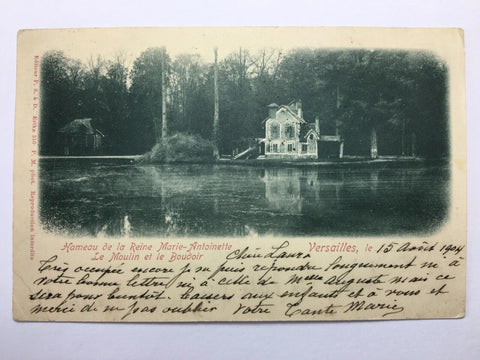 Editeur P. S. à D. Erika 110 P. M. phot. Reproduction interdite
Hameau de la Reine Marie-Antoinette
Le Moulin et le Boudoir
Versailles, le 15 Août 1904
Chère Laure
Très occupée encore je ne puis répondre longuement ni à
votre bonne lettre, ni à celle de Mme Auguste mais ce
sera pour bientôt. baisers aux enfants et à vous et
merci de ne pas oublier Votre Tante Marie